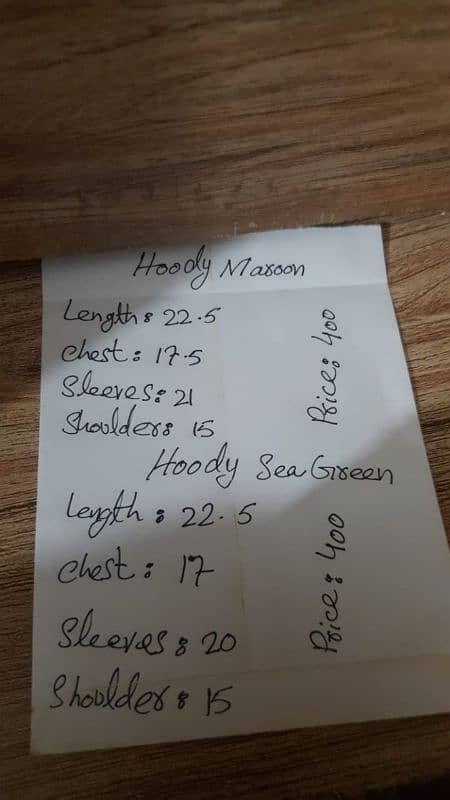 Hoody Maroon
Length: 22.5
Chest: 17.5
Sleeves: 21
Shoulder: 15
Price: 400
Hoody Sea Green
Length: 22.5
Chest: 17
Sleeves: 20
Shoulder: 15
Price: 400